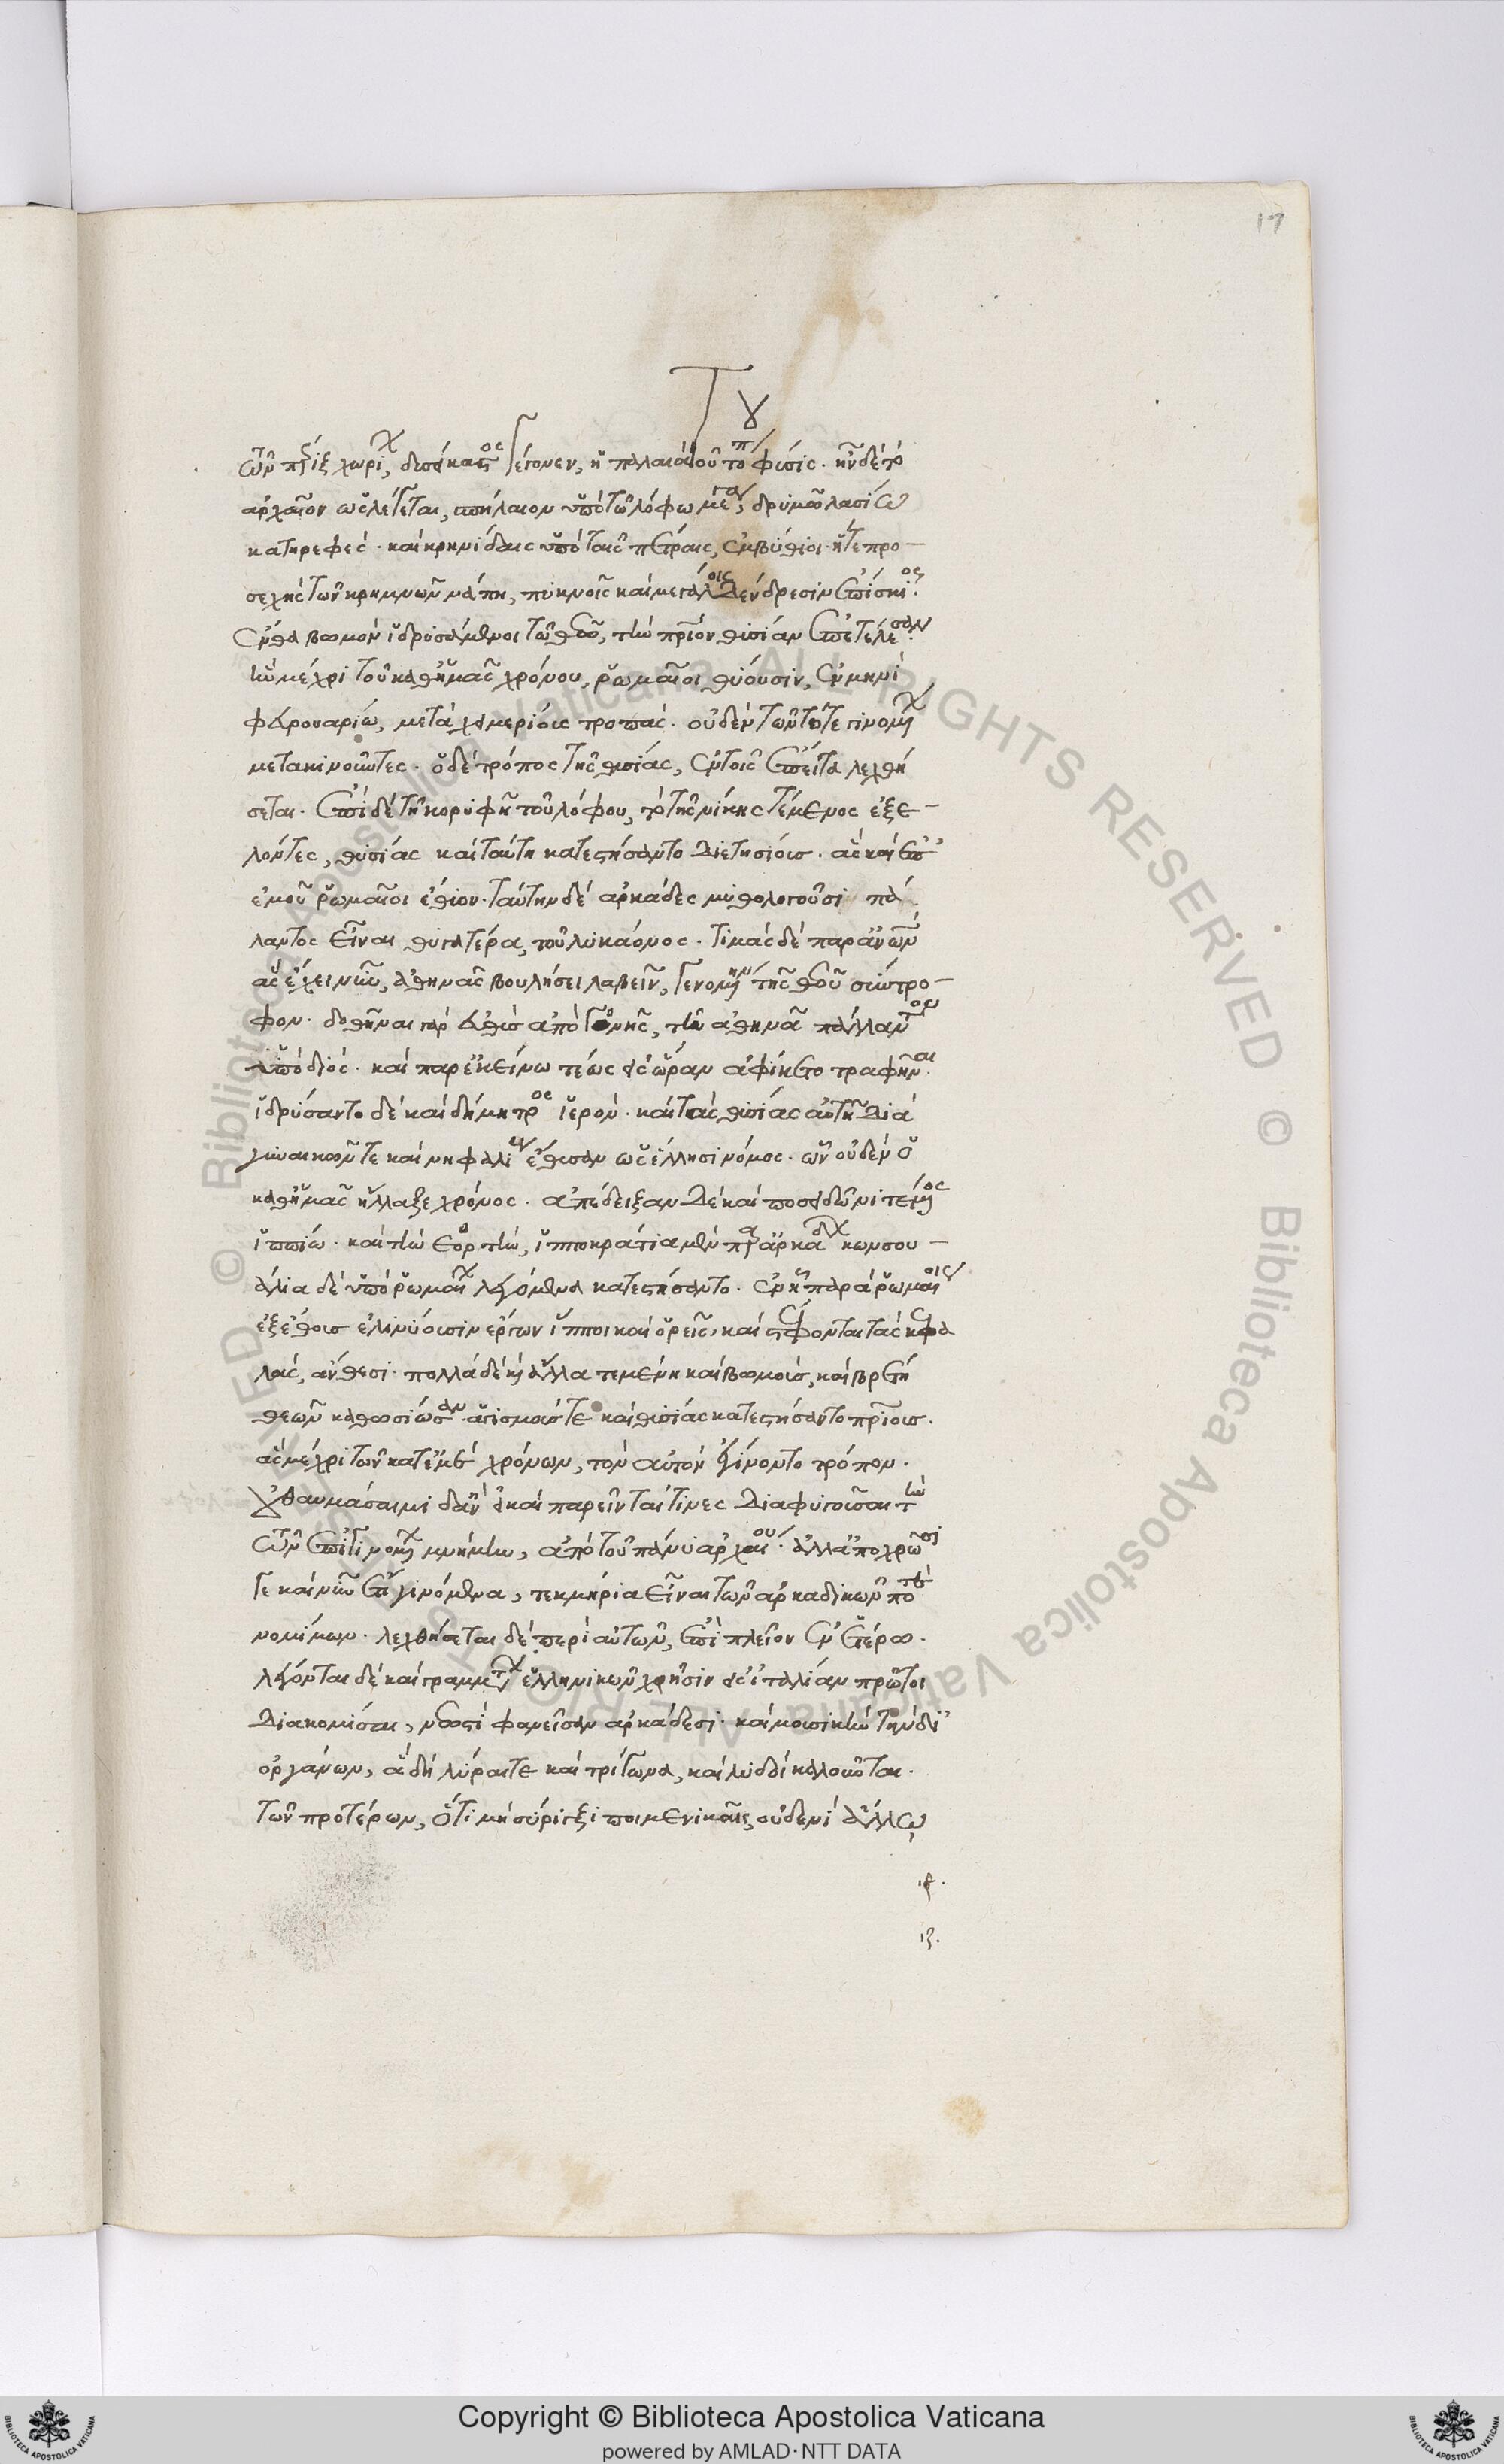 17
τῶν πέριξ χωρίων, δυσείκαστος γέγονεν, ἡ παλαιὰ τοῦ τόπου φύσις. ἦν δὲ τὸ
ἀρχαῖον ὡς λέγεται, σπήλαιον ὑπὸ τῶ λόφω μέγα, δρυμῶ λασίω
κατηρεφές. καὶ κρηνίδαις ὑπὸ ταῖς πέτραις, ἐμβύθιοι. ἥ τε προ
σεχὴς τῶν κρημνῶν νάπη, πυκνοῖς καὶ μεγάλοις δένδρεσιν ἐπίσκιος.
ἔνθα βωμὸν ἱδρυσάμενοι τῶ θεῶ, τὴν πάτριον θυσίαν ἐπετέλεσαν.
ἣν μέχρι τοῦ καθ' ἡμᾶς χρόνου, ῥωμαῖοι θύουσιν, ἐν μηνὶ
φεβρουαρίω, μετὰ χειμερίους τροπάς. οὐδὲν τῶν τότε γινομένων
μετακινοῦντες. ὁ δὲ τρόπος τῆς θυσίας, ἐν τοῖς ἔπειτα λεχθή
σεται. ἐπὶ δὲ τῆ κορυφῆ τοῦ λόφου, τὸ τῆς νίκης τέμενος ἐξε
λόντες, θυσίας καὶ ταύτη κατεστήσαντο διετησίους. ἃς καὶ ἐπ'
ἐμοῦ ῥωμαῖοι ἔθυον. ταύτην δὲ ἀρκάδες μυθολογοῦσι πά
λαντος εἶναι θυγατέρα, τοῦ λυκάονος. τιμὰς δὲ παρ' ἀνθρώπων
ἃς ἔχει νῦν, ἀθηνᾶς βουλήσει λαβεῖν, γενομένην τῆς θεοῦ σύντρο
φον. δοθῆναι γὰρ εὐθὺς ἀπὸ γονῆς, τὴν ἀθηνᾶ πάλλαντι
ὑπὸ διός. καὶ παρ' ἐκείνω τέως εἰς ὥραν ἀφίκετο τραφῆναι.
ἱδρύσαντο δὲ καὶ δήμητρος ἱερόν. καὶ τὰς θυσίας αὐτῆ διὰ
γυναικῶν τε καὶ νηφαλίους ἔθυσαν ὡς ἕλλησι νόμος. ὧν οὐδὲν ὁ
καθ' ἡμᾶς ἤλλαξε χρόνος. ἀπέδειξαν δὲ καὶ ποσειδῶνι τέμενος
ἱππίω. καὶ τὴν ἑορτὴν, ἱπποκράτια μὲν παρὰ ἀρκάδων κωνσου
άλια δὲ ὑπὸ ῥωμαίων λεγόμενα κατεστήσαντο. ἐν ἧ παρὰ ῥωμαίοις
ἐξ ἔθους ἐλινύουσιν ἔργων ἵπποι καὶ ὀρεῖς, καὶ στέφονται τὰς κεφα
λὰς, ἄνθεσι. πολλὰ δὲ καὶ ἄλλα τεμένη καὶ βωμοὺς, καὶ βρέτη
θεῶν καθωσίωσαν. ἁγισμούς τε καὶ θυσίας κατεστήσαντο πατρίους.
ἃς μέχρι τῶν κατ' ἐμὲ χρόνων, τὸν αὐτὸν ἐγίνοντο τρόπον.
θαυμάσαιμι δ' ἂν εἰ καὶ παρεῖνταί τινες διαφυγοῦσαι τὴν
τῶν ἐπιγινομένων μνήμην, ἀπὸ τοῦ πάνυ ἀρχαίου. ἀλλ' ἀποχρῶσί
γε καὶ νῦν ἔτι γινόμενα, τεκμήρια εἶναι τῶν ἀρκαδικῶν ποτὲ
νομίμων. λεχθήσεται δὲ περὶ αὐτῶν, ἐπὶ πλεῖον ἐν ἑτέρω.
λέγονται δὲ καὶ γραμμάτων ἑλληνικῶν χρῆσιν εἰς ἰταλίαν πρῶτοι
διακομίσαι, νεωστὶ φανεῖσαν ἀρκάδεσι. καὶ μουσικὴν τὴν δι'
ὀργάνων, ἃ δὴ λύραι τε καὶ τρίγωνα, καὶ λυδοὶ καλοῦνται.
τῶν προτέρων, ὅτι μὴ σύριγξι ποιμενικαῖς, οὐδενὶ ἄλλω
Copyright © Biblioteca Apostolica Vaticana
powered by AMLAD·NTT DATA